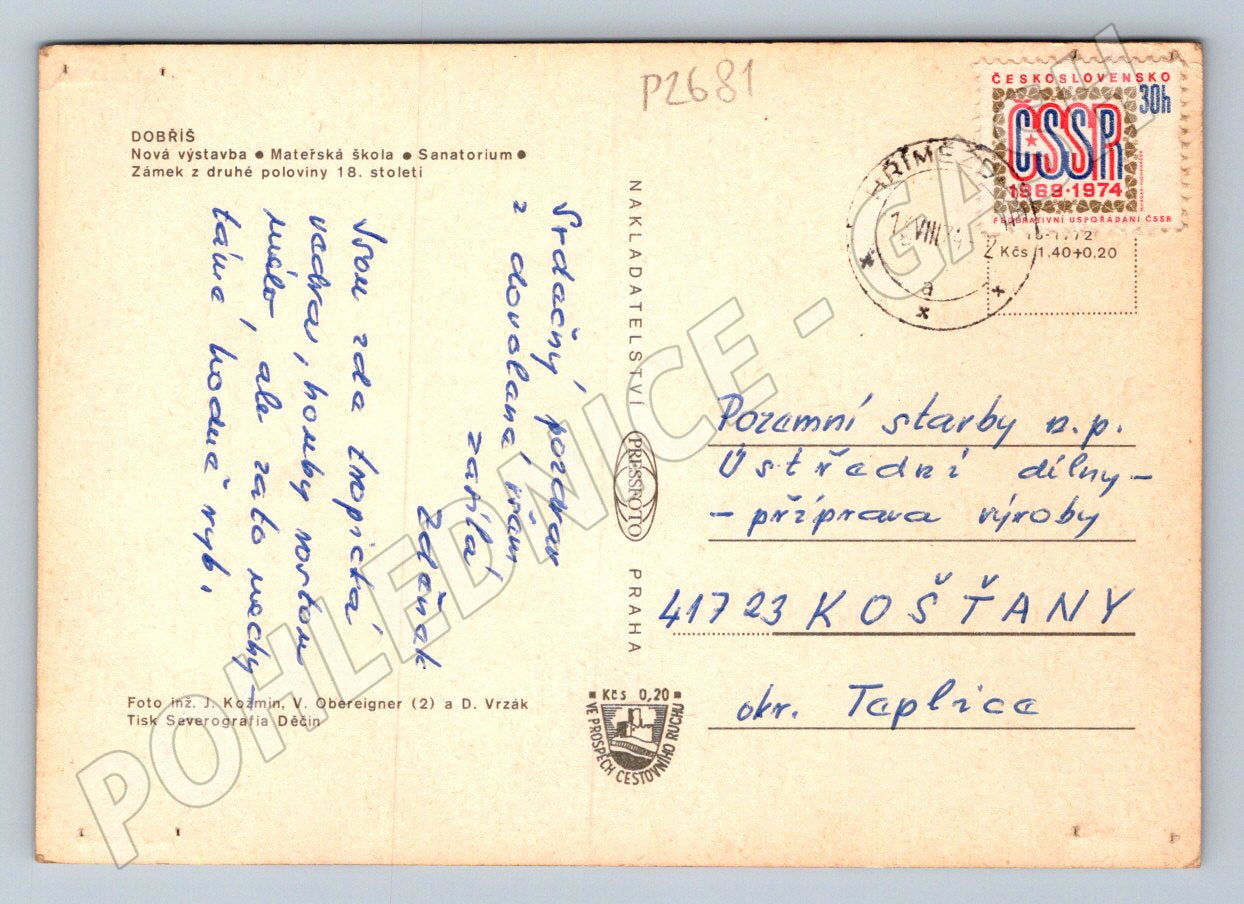 P2681
ČESKOSLOVENSKO
30h
ČSSR
1969·1974
FEDERATIVNÍ USPOŘÁDÁNÍ ČSSR
HŘÍMĚŽD
VIII
a
Kčs 1.40+0.20
DOBŘÍŠ
Nová výstavba ● Mateřská škola ● Sanatorium ●
Zámek z druhé poloviny 18. století
Srdečný pozdrav
z dovolené všem
zasílá
Zdeněk
Jsou zde tropická
vedra, houby rostou
málo, ale zato nechy-
táme hodně ryb.
NAKLADATELSTVÍ PRESSFOTO PRAHA
Pozemní stavby n.p.
Ústřední dílny –
– příprava výroby
41723 KOŠŤANY
okr. Teplice
Foto inž. J. Kozmín, V. Obereigner (2) a D. Vrzák
Tisk Severografia Děčín
Kčs 0,20
VE PROSPĚCH CESTOVNÍHO RUCHU
POHLEDNICE - GALU